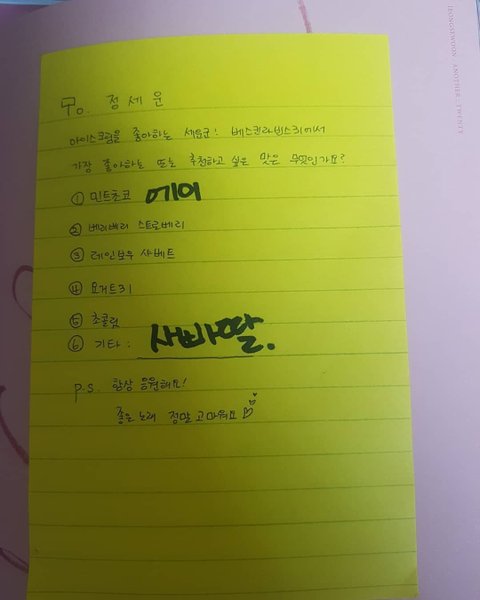 To. 정세운
아이스크림을 좋아하는 세운군! 베스킨라빈스31에서
가장 좋아하는 또는 추천하고 싶은 맛은 무엇인가요?
① 민트초코 에이
② 베리베리 스트로베리
③ 레인보우 샤베트
④ 요거트31
⑤ 초콜릿
⑥ 기타: 사빠딸.
P.S. 항상 응원해요!
좋은 노래 정말 고마워요
JEONGSEWOON ANOTHER TWENTY